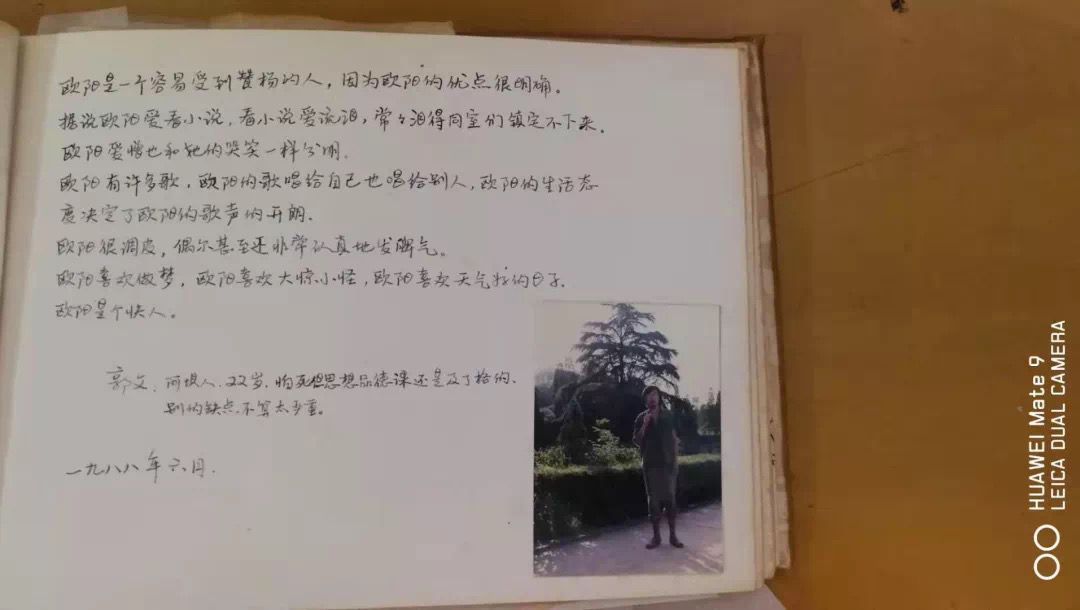 欧阳是一个容易受到赞杨的人，因为欧阳的优点很明确。
据说欧阳爱看小说，看小说爱流泪，常々泪得同室们镇定不下来.
欧阳爱憎也和她的哭笑一样分明.
欧阳有许多歌，欧阳的歌唱给自己也唱给别人，欧阳的生活态
度决定了欧阳的歌声的开朗.
欧阳很调皮，偶尔甚至还非常认真地发脾气。
欧阳喜欢做梦，欧阳喜欢大惊小怪，欧阳喜欢天气好的日子.
欧阳是个快人。
郭文. 人.22岁. 思想品德课还是及了格的.
别的缺点不算太严重。
一九八八年六月.
HUAWEI Mate 9
LEICA DUAL CAMERA